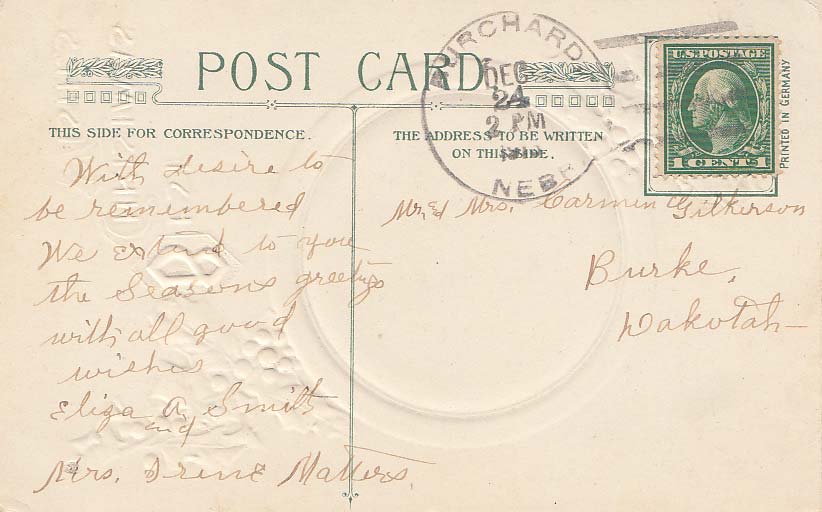 POST CARD
THIS SIDE FOR CORRESPONDENCE.
THE ADDRESS TO BE WRITTEN
ON THIS SIDE.
BURCHARD
DEC
24
2 PM
NEBR
U.S. POSTAGE
1 CENT 1
PRINTED IN GERMANY
With desire to
be remembered
We extend to you
the Seasons greetings
with all good
wishes
Eliza A. Smith
and
Mrs. Irene Matters.
Mr. & Mrs. Carmin Gilkerson
Burke,
Dakotah